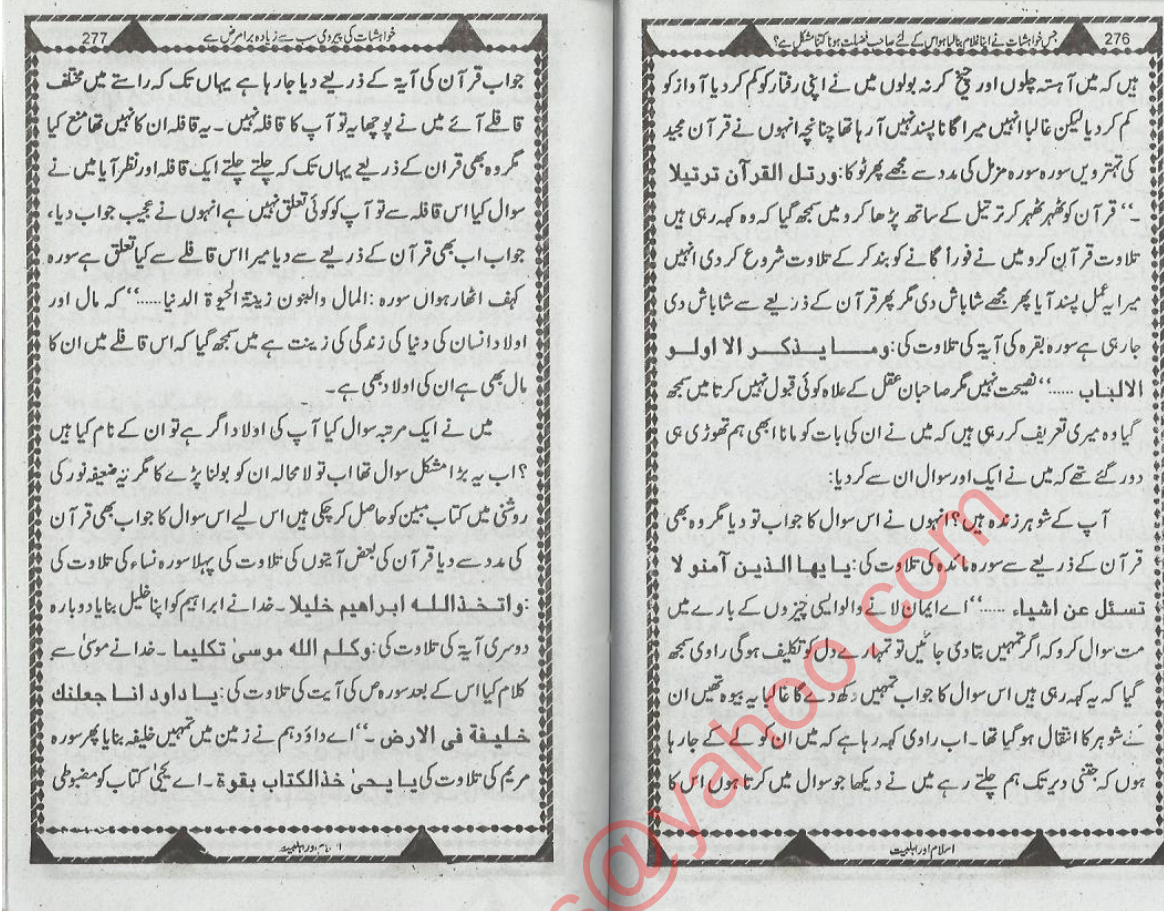 276
جس خواہشات نے اپنا غلام بنا لیا ہو اس کے لئے صاحب فضیلت ہونا کتنا مشکل ہے؟
ہیں کہ میں آہستہ چلوں اور چیخ کر نہ بولوں میں نے اپنی رفتار کو کم کر دیا آواز کو
کم کر دیا لیکن غالبا انہیں میرا گانا پسند نہیں آرہا تھا چنانچہ انہوں نے قرآن مجید
کی تہترویں سورہ سورہ مزمل کی مدد سے مجھے پھر ٹوکا: ورتل القرآن ترتیلا
۔‘‘ قرآن کو ٹھہر ٹھہر کر ترتیل کے ساتھ پڑھا کرو میں سمجھ گیا کہ وہ کہہ رہی ہیں
تلاوت قرآن کرو میں نے فوراً گانے کو بند کر کے تلاوت شروع کر دی انہیں
میرا یہ عمل پسند آیا پھر مجھے شاباش دی مگر پھر قرآن کے ذریعے سے شاباش دی
جارہی ہے سورہ بقرہ کی آیۃ کی تلاوت کی: وما یذکر الا اولو
الالباب ……‘‘ نصیحت نہیں مگر صاحبان عقل کے علاہ کوئی قبول نہیں کرتا میں سمجھ
گیا وہ میری تعریف کر رہی ہیں کہ میں نے ان کی بات کو مانا ابھی ہم تھوڑی ہی
دور گئے تھے کہ میں نے ایک اور سوال ان سے کر دیا:
آپ کے شوہر زندہ ہیں؟ انہوں نے اس سوال کا جواب تو دیا مگر وہ بھی
قرآن کے ذریعے سے سورہ مائدہ کی تلاوت کی: یایها الذین آمنو لا
تسئل عن اشیاء ……‘‘ اے ایمان لانے والو ایسی چیزوں کے بارے میں
مت سوال کرو کہ اگر تمہیں بتا دی جائیں تو تمہارے دل کو تکلیف ہوگی راوی سمجھ
گیا کہ یہ کہہ رہی ہیں اس سوال کا جواب تمہیں دکھ دے گا غالبا یہ بیوہ تھیں ان
کے شوہر کا انتقال ہو گیا تھا۔ اب راوی کہہ رہا ہے کہ میں ان کو لے کے جا رہا
ہوں کہ جتنی دیر تک ہم چلتے رہے میں نے دیکھا جو سوال میں کرتا ہوں اس کا
اسلام اور اہلبیت
277
خواہشات کی پیروی سب سے زیادہ برا مرض ہے
جواب قرآن کی آیۃ کے ذریعے دیا جارہا ہے یہاں تک کہ راستے میں مختلف
قافلے آئے میں نے پوچھا یہ تو آپ کا قافلہ نہیں۔ یہ قافلہ ان کا نہیں تھا منع کیا
مگر وہ بھی قران کے ذریعے یہاں تک کہ چلتے چلتے ایک قافلہ اور نظر آیا میں نے
سوال کیا اس قافلہ سے تو آپ کو کوئی تعلق نہیں ہے انہوں نے عجیب جواب دیا،
جواب اب بھی قرآن کے ذریعے سے دیا میرا اس قافلے سے کیا تعلق ہے سورہ
کہف اٹھارہواں سورہ: المال والبنون زینۃ الحیوۃ الدنیا……‘‘ کہ مال اور
اولاد انسان کی دنیا کی زندگی کی زینت ہے میں سمجھ گیا کہ اس قافلے میں ان کا
مال بھی ہے ان کی اولاد بھی ہے۔
میں نے ایک مرتبہ سوال کیا آپ کی اولاد اگر ہے تو ان کے نام کیا ہیں
؟ اب یہ بڑا مشکل سوال تھا اب تو لامحالہ ان کو بولنا پڑے گا مگر یہ ضعیفہ نور کی
روشنی میں کتاب مبین کو حاصل کر چکی ہیں اس لیے اس سوال کا جواب بھی قرآن
کی مدد سے دیا قرآن کی بعض آیتوں کی تلاوت کی پہلا سورہ نساء کی تلاوت کی
: واتخذ اللہ ابراهیم خلیلا۔ خدا نے ابراہیم کو اپنا خلیل بنایا دوبارہ
دوسری آیۃ کی تلاوت کی: وکلم الله موسیٰ تکلیما۔ خدا نے موسیٰ سے
کلام کیا اس کے بعد سورہ ص کی آیت کی تلاوت کی: یا داود انا جعلنك
خلیفة فی الارض۔‘‘ اے داؤد ہم نے زمین میں تمہیں خلیفہ بنایا پھر سورہ
مریم کی تلاوت کی یا یحیٰ خذالکتاب بقوة۔ اے یحیٰ کتاب کو مضبوطی
اسلام اور اہلبیت
s@yahoo.com